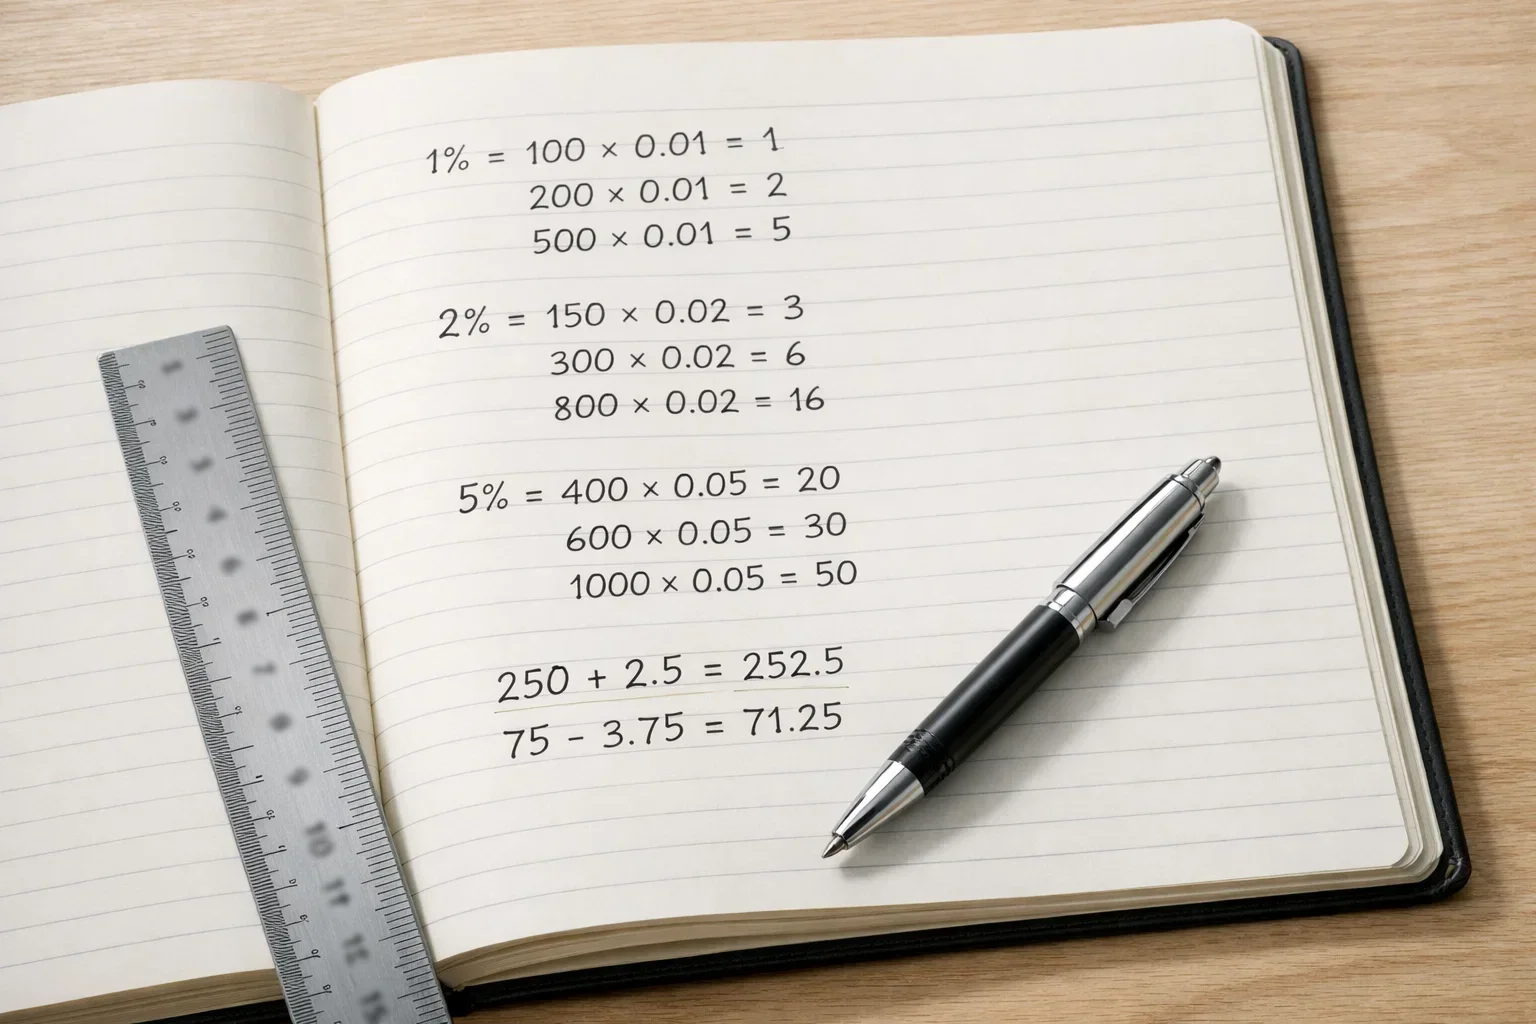 1% = 100 × 0.01 = 1
200 × 0.01 = 2
500 × 0.01 = 5
2% = 150 × 0.02 = 3
300 × 0.02 = 6
800 × 0.02 = 16
5% = 400 × 0.05 = 20
600 × 0.05 = 30
1000 × 0.05 = 50
250 + 2.5 = 252.5
75 - 3.75 = 71.25